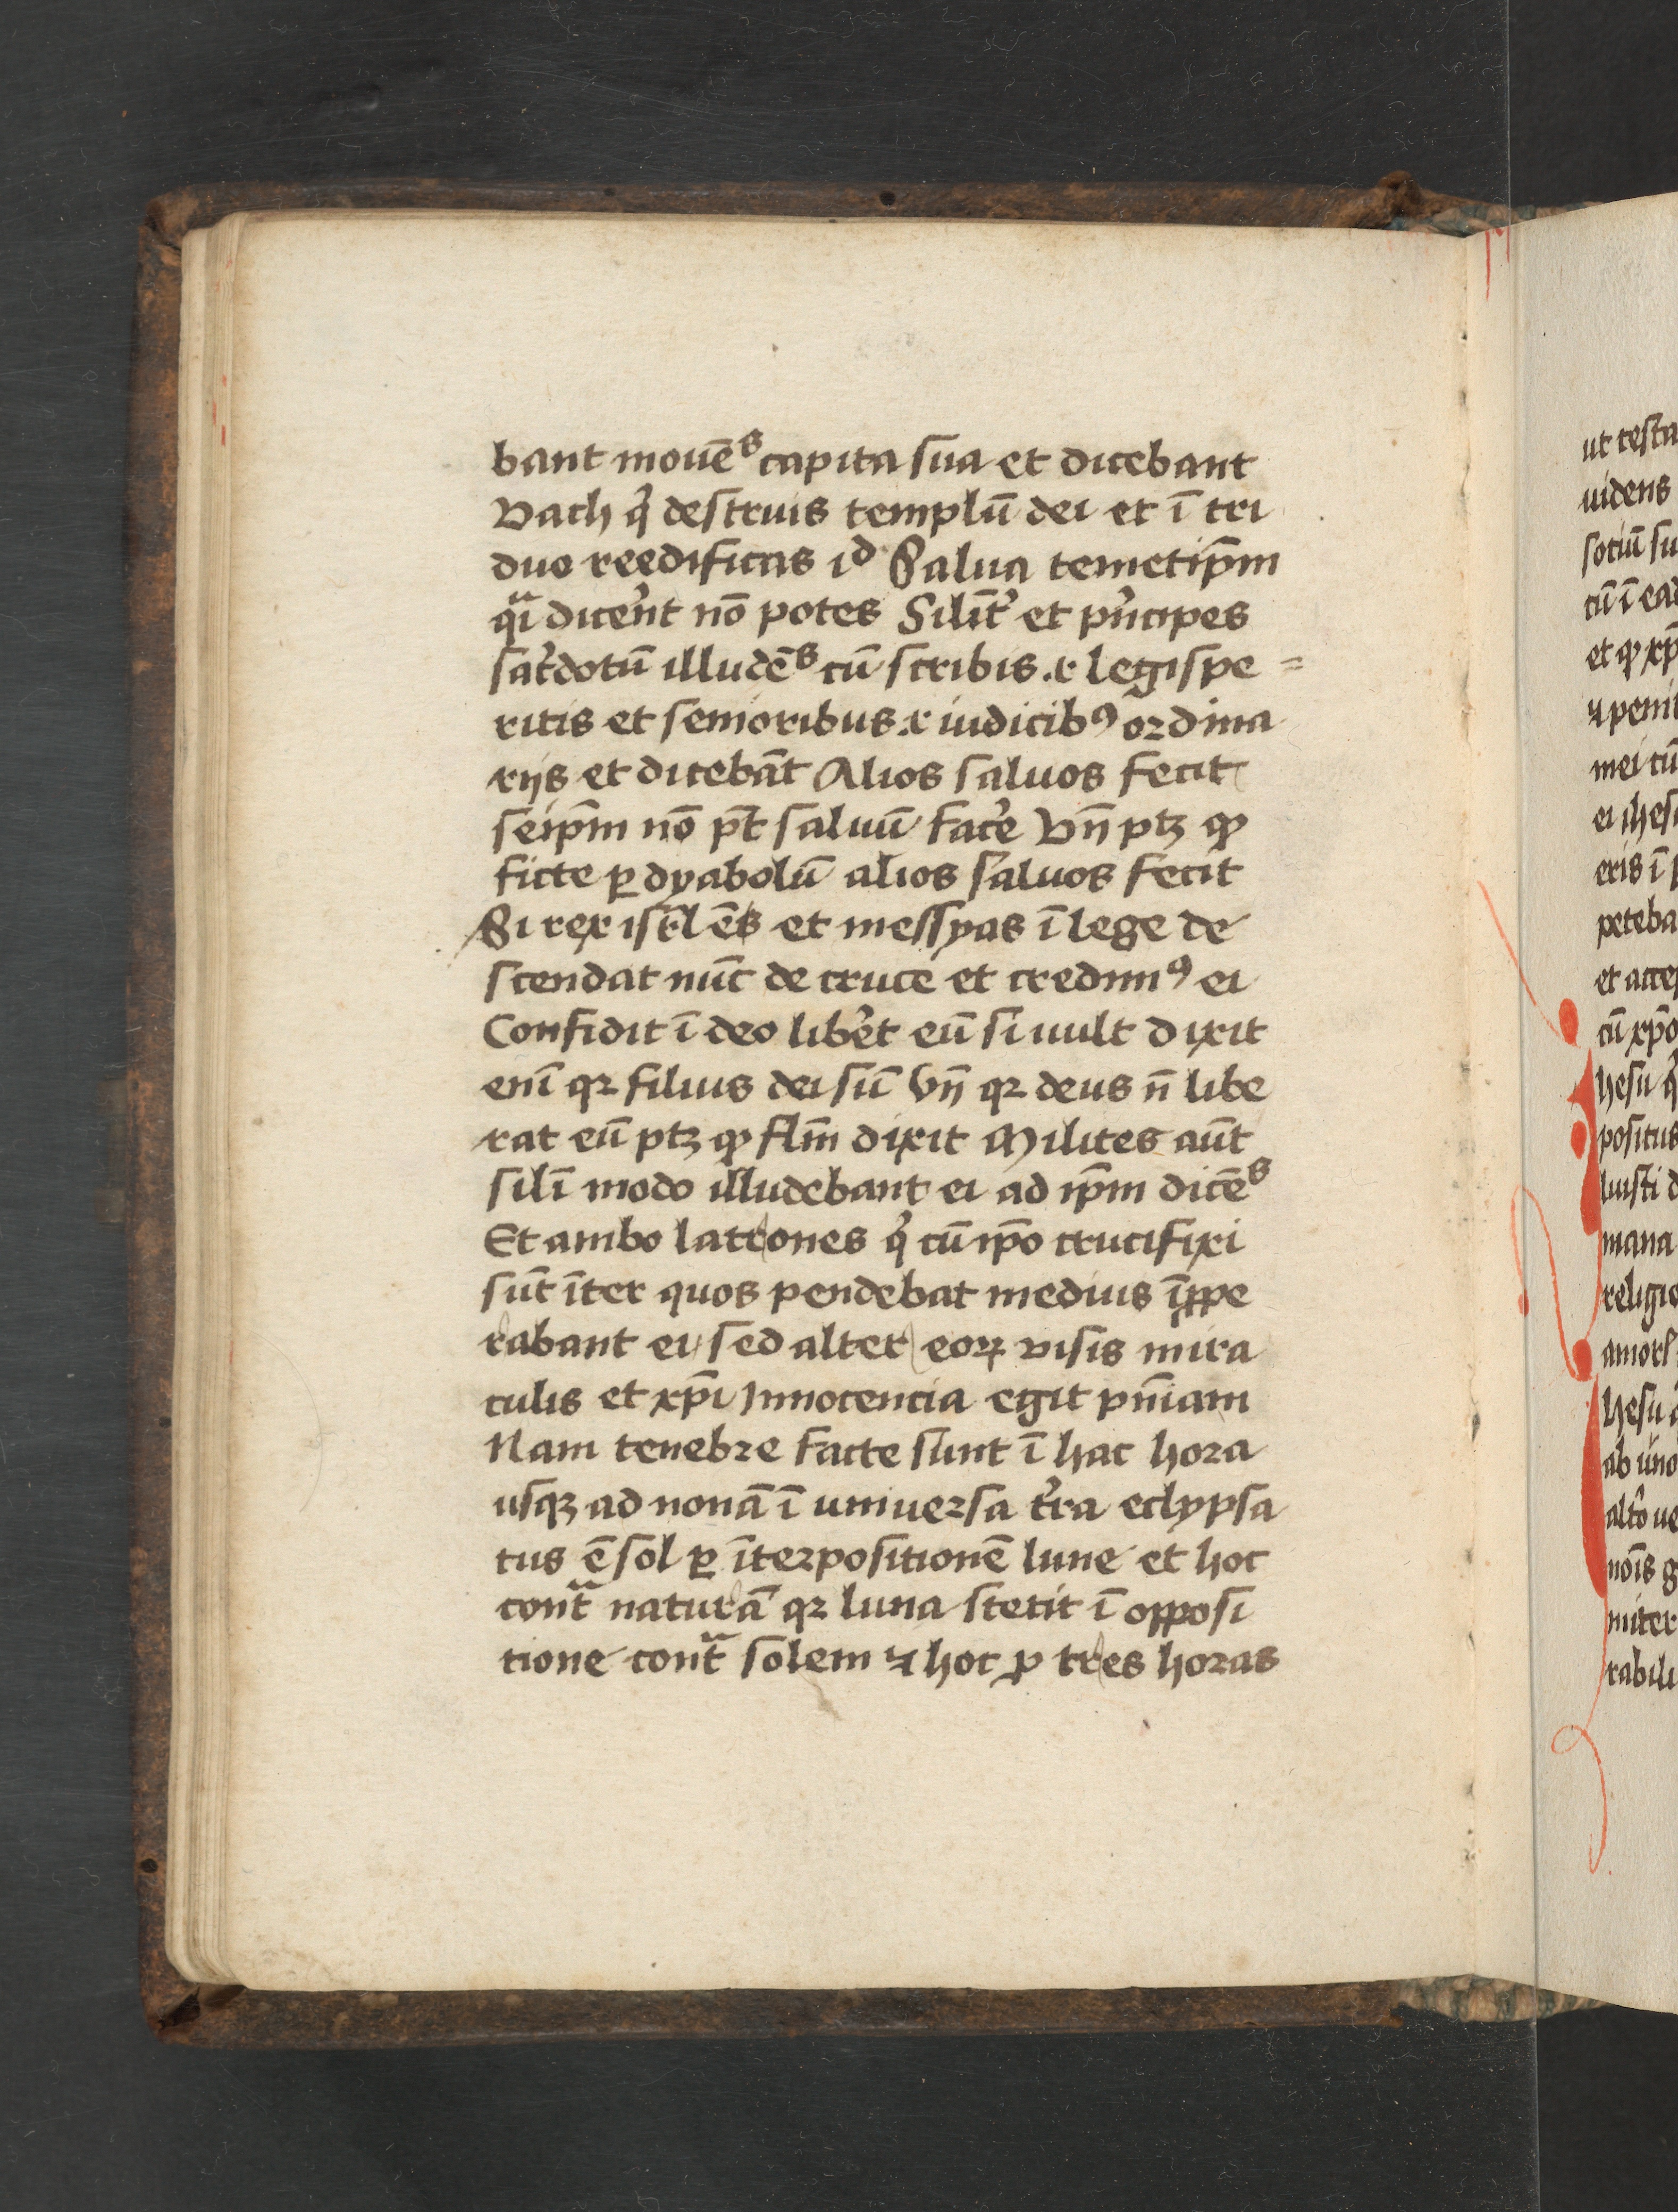 bant mouēs capita sua et dicebant
Vach q̉ destruis templū dei et ī tri
duo reedificas id Salua temetip̄m
qͣi dicēnt nō potes Silit̄ et pͥncipes
sac̉dotū illudēs cū scribis .r legispe =
ritis et senioribus .r iudicibꝯ ordina
rijs et dicebāt Alios saluos fecit
seip̄m nō pt̄ saluū fac̉e Vn̄ ptꝫ ꝙ
ficte ꝑ dyabolū alios saluos fecit
Si rex isrl̄ ēs et messyas ī lege de
scendat nūc de cruce et credimꝯ ei
Confidit ī deo lib̉et eū si uult dixit
enī qꝛ filius dei sū Vn̄ qꝛ deus n̄ libe
rat eū ptꝫ ꝙ flm̄ dixit Milites aūt
silī modo illudebant ei ad ip̄m dicēs
Et ambo latrones q̉ cū ip̄o crucifixi
sūt īter quos pendebat medius īꝓpe
rabant ei sed alter eoꝝ visis mira
culis et xp̄i Innocencia egit pn̄iam
Nam tenebre facte sunt ī hac hora
usqꝫ ad nonā ī uniuersa t̉ra eclypsa
tus ē sol ꝑ īterpositionē lune et hoc
contͣ naturā qꝛ luna stetit ī opposi
tione contͣ solem ⁊ hoc ꝑ tres horas
ut testa
uidens
sociū su
cū ī ead
et ꝙ xp̄
⁊ penit
mei cū
ei ihesu
eris ī p
peteba
et accep
cū xp̄o
hesu q̉
positus
luisti d
mana
religio
amorē
hesu
ab uno
alt̉o ue
nōis g
miter
rabili